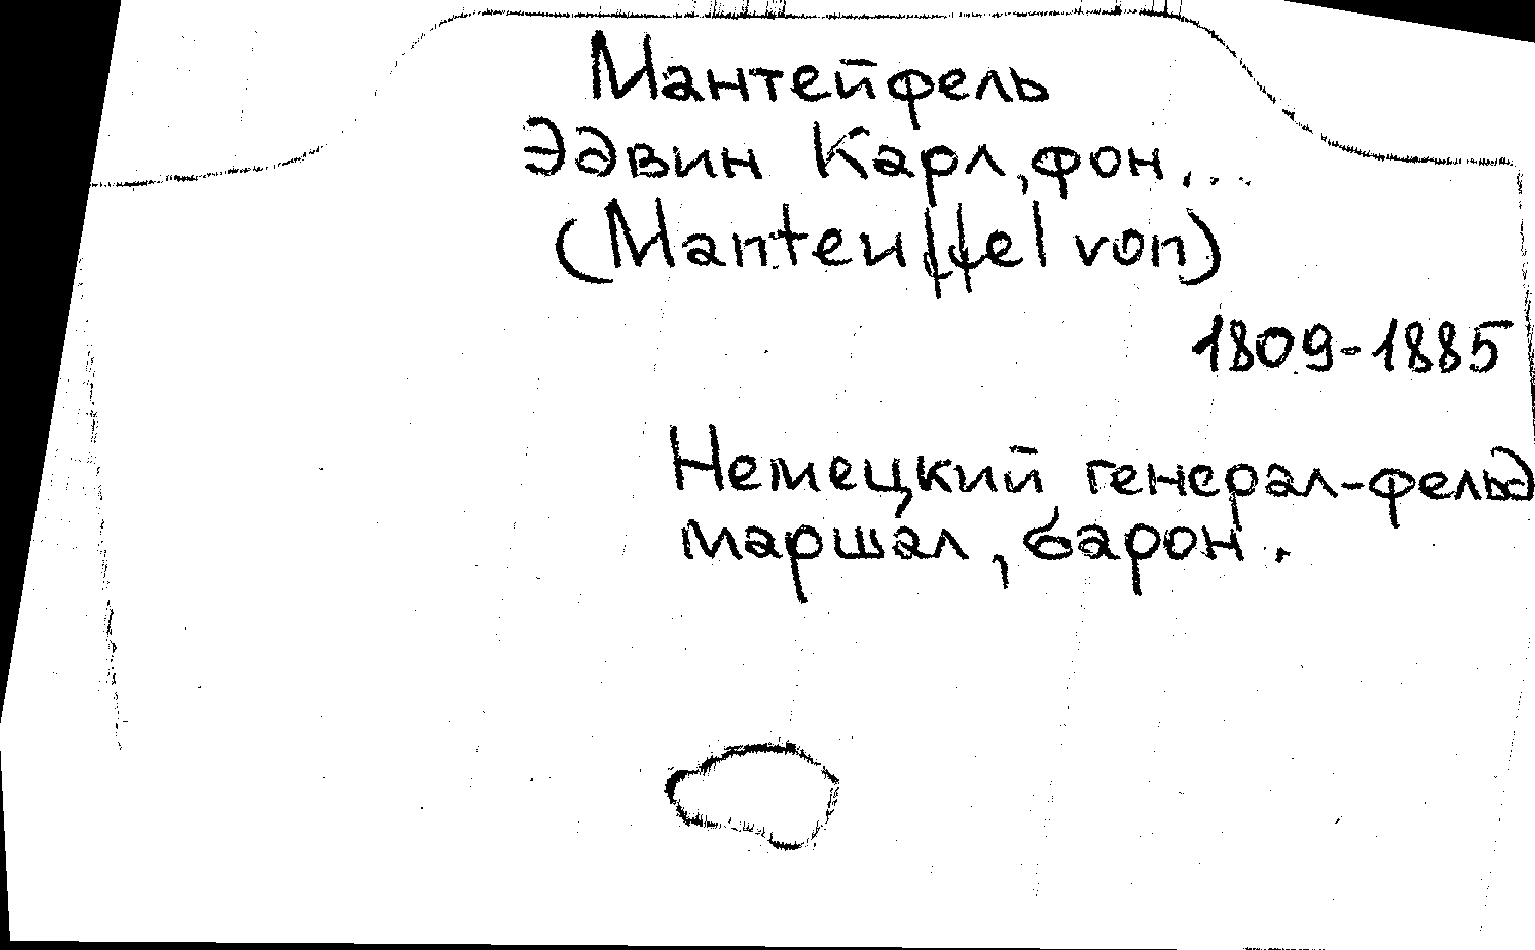 Мантейфель
Эдвин Карл, фон...
(Manteuffel von)
1809-1885
Немецкий генерал-фельд
маршал, барон.